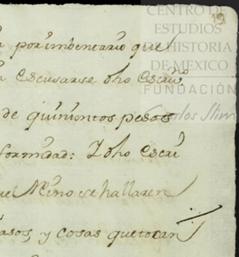 CENTRO DE
ESTUDIOS
DE HISTORIA
DE MEXICO
FUNDACIÓN
Carlos Slim
19
por imbentario que
Escusarse dho Escriv.no
de quinientos pesos
formidad: Y dho Escri
se hallaren
casos, y cosas que tocan